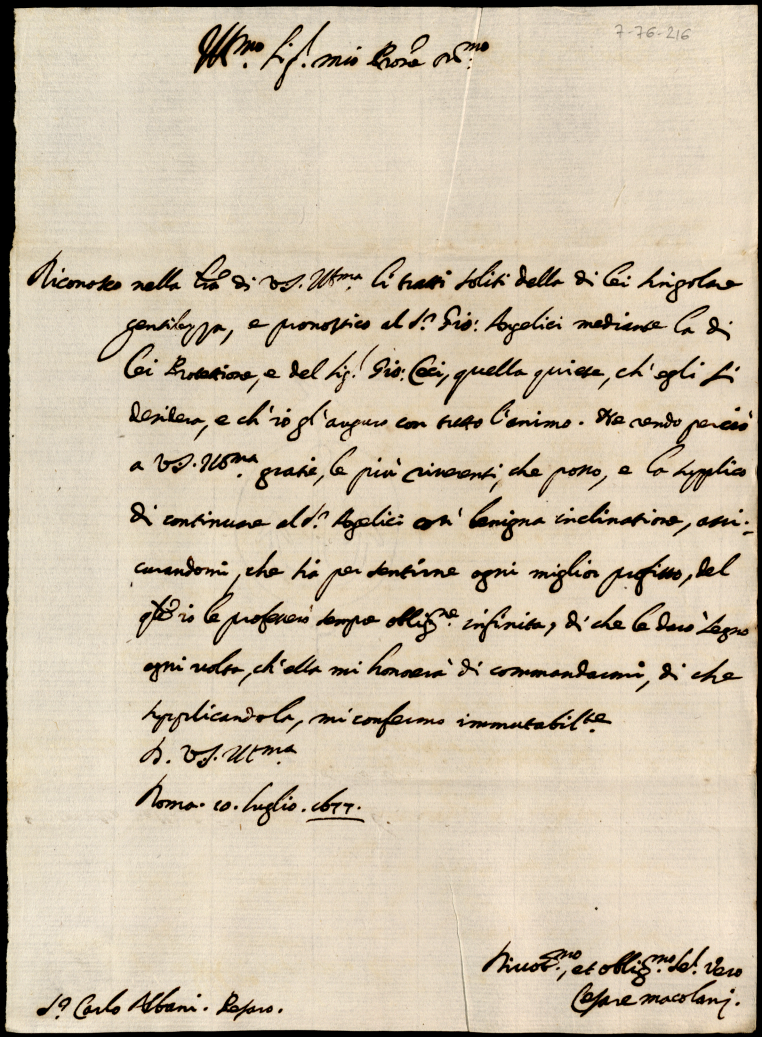 7-76-216
Ill.mo Sig.r mio Prone oss.mo
Riconosco nella l'ra di VS. Ill.ma li tratti soliti della di lei singolare
gentilezza, e pronostico al S.r Gio: Angelici mediante la di
lei Protettione, e del Sig.r Gio: Ceci, quella quiete, ch'egli si
desidera, e ch'io gl'auguro con tutto l'animo. Ne rendo perciò
a VS. Ill.ma gratie, le più riverenti, che posso, e la supplico
di continuare al S.r Angelici così benigna inclinatione, assi-
curandomi, che sia per sentirne ogni miglior profitto, del
io le professerò sempre oblig.ne infinita, di che le darò segno
ogni volta, ch'ella mi honorerà di commandarmi, di che
supplicandola, mi confermo immutabil.te
D. VS. Ill.ma
Roma. 10. luglio. 1677.
et oblig.mo Se.r Vero
Cesare Macolani.
S.r Carlo Albani. Pesaro.